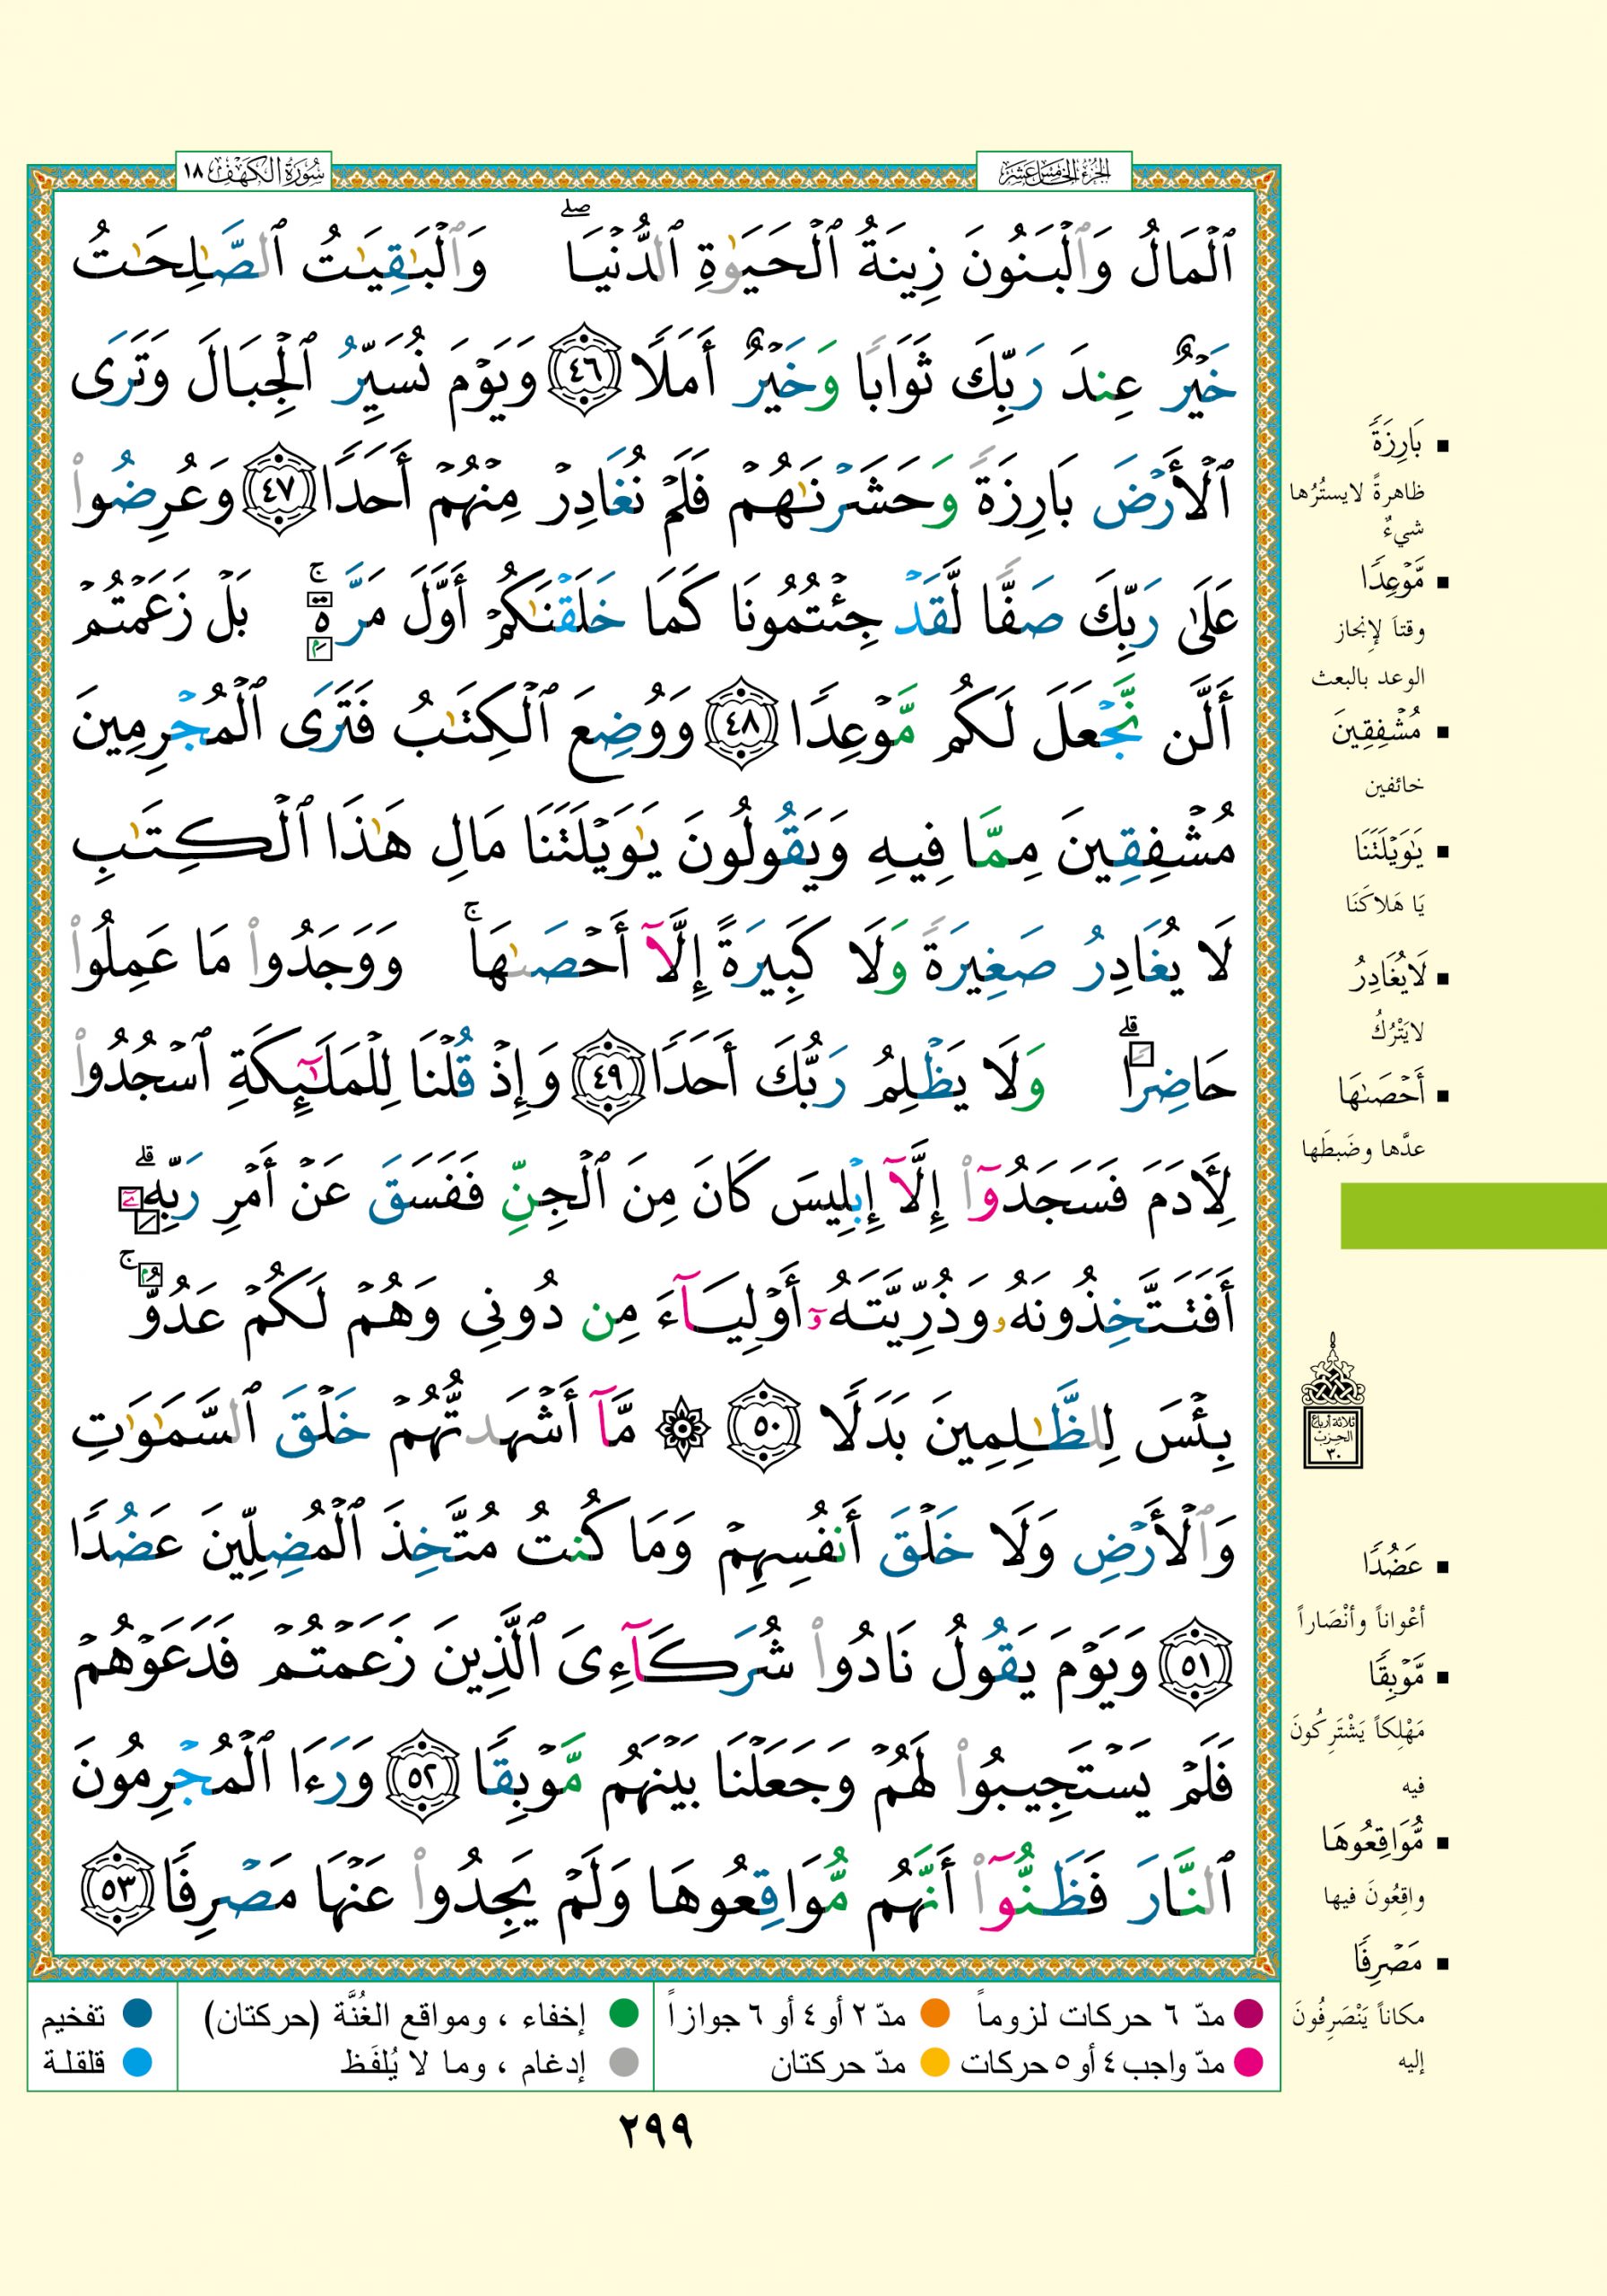 الجزء الخامس عشر
سورة الكهف ١٨
ٱلۡمَالُ وَٱلۡبَنُونَ زِينَةُ ٱلۡحَيَوٰةِ ٱلدُّنۡيَاۖ وَٱلۡبَٰقِيَٰتُ ٱلصَّٰلِحَٰتُ
خَيۡرٌ عِندَ رَبِّكَ ثَوَابٗا وَخَيۡرٌ أَمَلٗا ٤٦ وَيَوۡمَ نُسَيِّرُ ٱلۡجِبَالَ وَتَرَى
ٱلۡأَرۡضَ بَارِزَةٗ وَحَشَرۡنَٰهُمۡ فَلَمۡ نُغَادِرۡ مِنۡهُمۡ أَحَدٗا ٤٧ وَعُرِضُواْ
عَلَىٰ رَبِّكَ صَفّٗا لَّقَدۡ جِئۡتُمُونَا كَمَا خَلَقۡنَٰكُمۡ أَوَّلَ مَرَّةِۭۚ بَلۡ زَعَمۡتُمۡ
أَلَّن نَّجۡعَلَ لَكُم مَّوۡعِدٗا ٤٨ وَوُضِعَ ٱلۡكِتَٰبُ فَتَرَى ٱلۡمُجۡرِمِينَ
مُشۡفِقِينَ مِمَّا فِيهِ وَيَقُولُونَ يَٰوَيۡلَتَنَا مَالِ هَٰذَا ٱلۡكِتَٰبِ
لَا يُغَادِرُ صَغِيرَةٗ وَلَا كَبِيرَةً إِلَّآ أَحۡصَىٰهَاۚ وَوَجَدُواْ مَا عَمِلُواْ
حَاضِرٗاۗ وَلَا يَظۡلِمُ رَبُّكَ أَحَدٗا ٤٩ وَإِذۡ قُلۡنَا لِلۡمَلَٰٓئِكَةِ ٱسۡجُدُواْ
لِأٓدَمَ فَسَجَدُوٓاْ إِلَّآ إِبۡلِيسَ كَانَ مِنَ ٱلۡجِنِّ فَفَسَقَ عَنۡ أَمۡرِ رَبِّهِۦٓۗ
أَفَتَتَّخِذُونَهُۥ وَذُرِّيَّتَهُۥٓ أَوۡلِيَآءَ مِن دُونِي وَهُمۡ لَكُمۡ عَدُوُّۢۚ
بِئۡسَ لِلظَّٰلِمِينَ بَدَلٗا ٥٠ ۞ مَّآ أَشۡهَدتُّهُمۡ خَلۡقَ ٱلسَّمَٰوَٰتِ
وَٱلۡأَرۡضِ وَلَا خَلۡقَ أَنفُسِهِمۡ وَمَا كُنتُ مُتَّخِذَ ٱلۡمُضِلِّينَ عَضُدٗا
٥١ وَيَوۡمَ يَقُولُ نَادُواْ شُرَكَآءِيَ ٱلَّذِينَ زَعَمۡتُمۡ فَدَعَوۡهُمۡ
فَلَمۡ يَسۡتَجِيبُواْ لَهُمۡ وَجَعَلۡنَا بَيۡنَهُم مَّوۡبِقٗا ٥٢ وَرَءَا ٱلۡمُجۡرِمُونَ
ٱلنَّارَ فَظَنُّوٓاْ أَنَّهُم مُّوَاقِعُوهَا وَلَمۡ يَجِدُواْ عَنۡهَا مَصۡرِفٗا ٥٣
بَارِزَةٗ
ظاهرةً لا يستُرُها
شيءٌ
مَّوۡعِدٗا
وقتاً لإنجاز
الوعد بالبعث
مُشۡفِقِينَ
خائفين
يَٰوَيۡلَتَنَا
يَا هَلاكَنَا
لَا يُغَادِرُ
لا يَتْرُكُ
أَحۡصَىٰهَا
عدَّها وضَبطَها
ثلاثة أرباع
الحزب
٣٠
عَضُدٗا
أعْواناً وأنْصَاراً
مَّوۡبِقٗا
مَهْلِكاً يَشْتَرِكُونَ
فيه
مُّوَاقِعُوهَا
واقِعُونَ فيها
مَصۡرِفٗا
مكاناً يَنْصَرِفُونَ
إليه
مدّ ٦ حركات لزوماً
مدّ ٢ أو ٤ أو ٦ جوازاً
إخفاء ، ومواقع الغُنَّة (حركتان)
تفخيم
مدّ واجب ٤ أو ٥ حركات
مدّ حركتان
إدغام ، وما لا يُلفَظ
قلقلة
٢٩٩